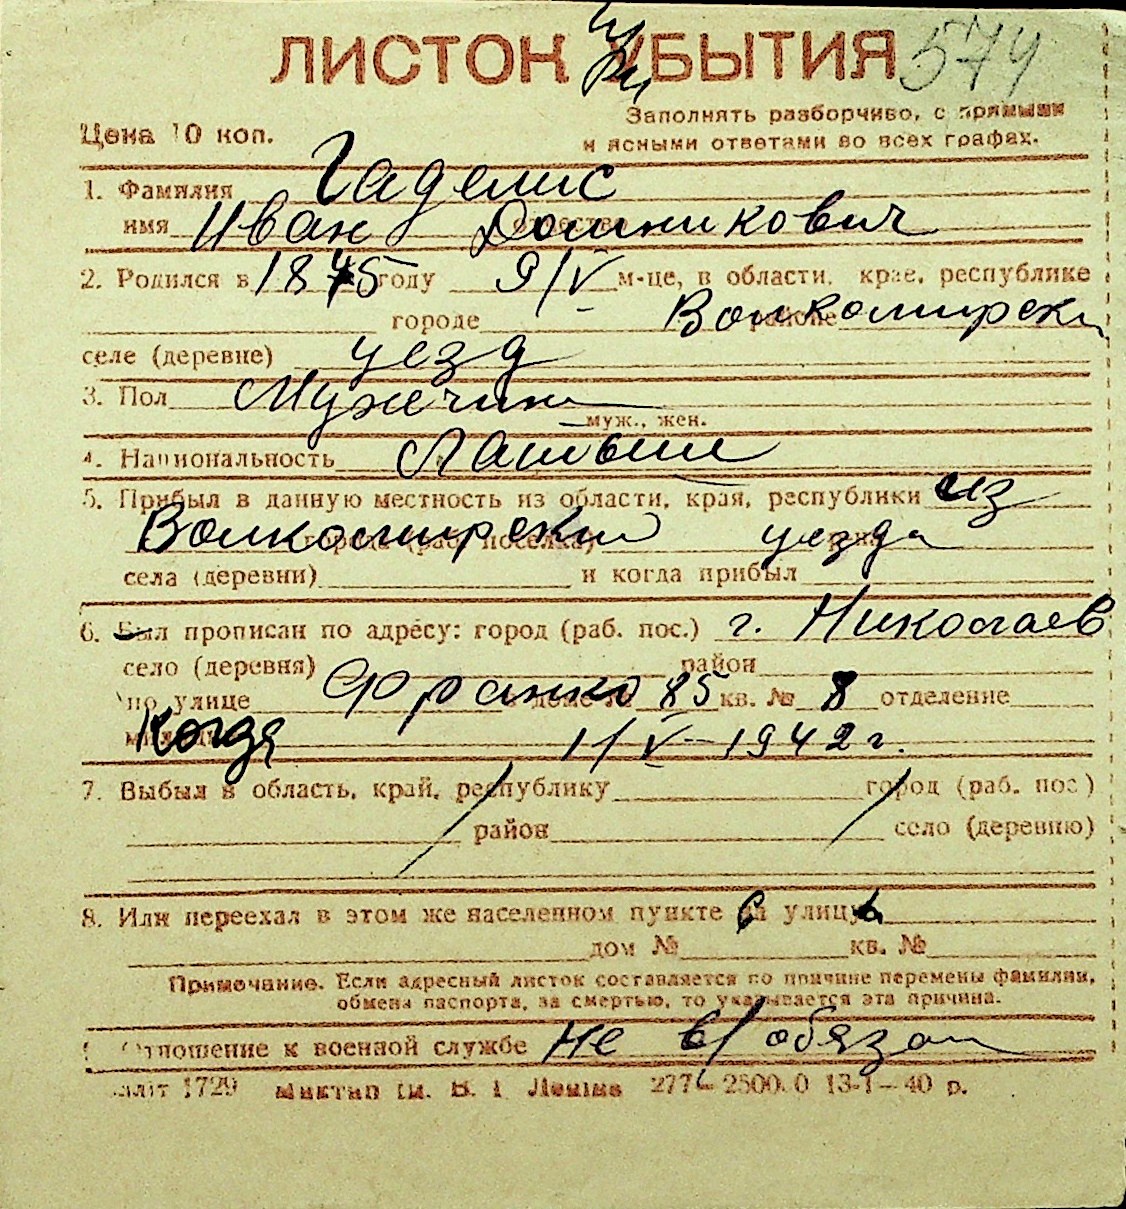 ЛИСТОК УБЫТИЯ 574
При
Цена 10 коп.
Заполнять разборчиво, с прямыми
и ясными ответами во всех графах.
1. Фамилия Гаделис
имя Иван отчество Доминикович
2. Родился в 1875 году 9/IV м-це, в области, крае, республике
городе районе Волкомирски
селе (деревне) уезд
3. Пол Мужчина
муж., жен.
4. Национальность Латвии
5. Прибыл в данную местность из области, края, республики из
Волкомирский города (раб. поселка) уезда
села (деревни) и когда прибыл
6. Был прописан по адресу: город (раб. пос.) г. Николаев
село (деревня) район
по улице Франко в доме № 85 кв. № 8 отделение
Когда 1/V-1942 г.
7. Выбыл в область, край, республику город (раб. пос)
район село (деревню)
8. Или переехал в этом же населенном пункте на улицу
дом № кв. №
Примечание. Если адресный листок составляется по причине перемены фамилии,
обмена паспорта, за смертью, то указывается эта причина.
Отношение к военной службе не в/обязан
1729 им. В. И Ленина 277 – 2500.0 13-1-40 р.